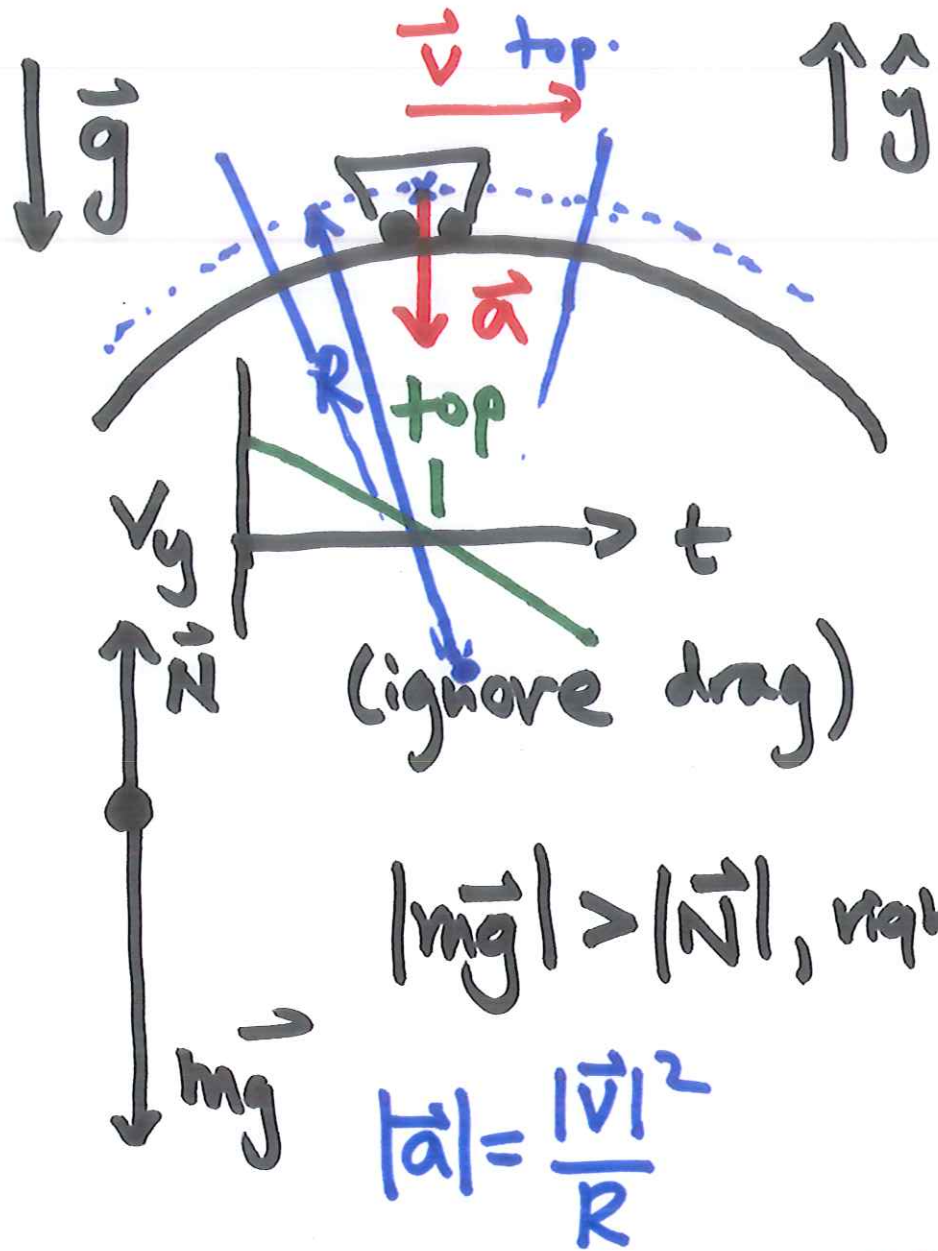 v⃗ top.
g⃗
ŷ
a⃗
R
top
V_y
t
N⃗
(ignore drag)
|mg⃗| > |N⃗|,
mg⃗
|a⃗| = |v⃗|² / R